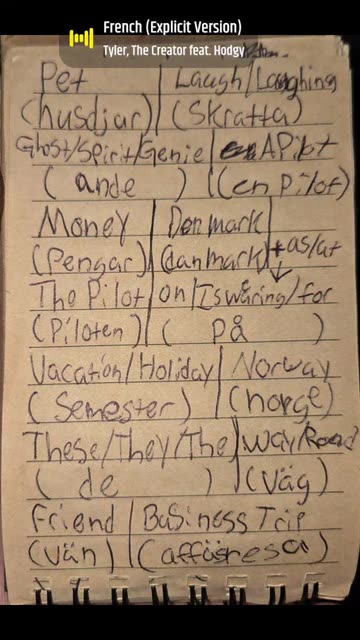 French (Explicit Version)
Tyler, The Creator feat. Hodgy
Pet | Laugh/Laughing
(husdjur) | (Skratta)
Ghost/Spirit/Genie | A Pilot
(ande) | (en Pilot)
Money | Denmark
(Pengar) | (danmark) + as/at
The Pilot | on/Iswåring/for
(Piloten) | (på)
Vacation/Holiday | Norway
(Semester) | (norge)
These/They/The | Way/Road
(de) | (väg)
Friend | Business Trip
(vän) | (affärsresa)